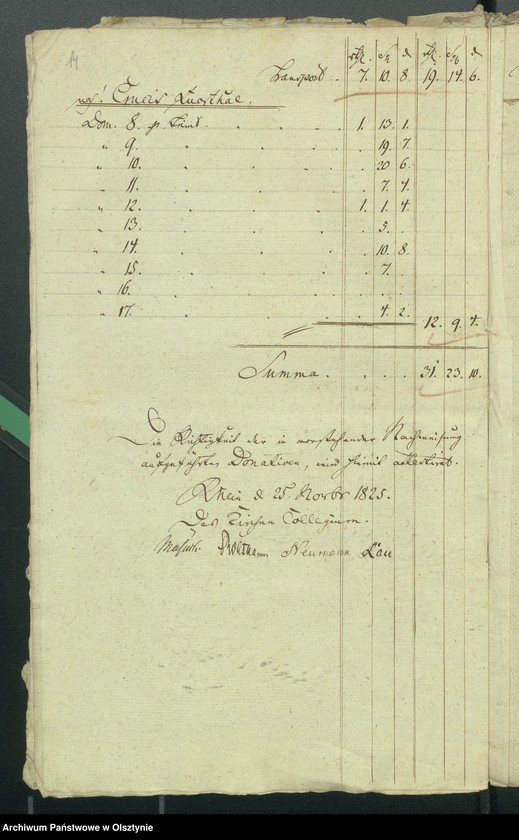 14
rtl. sg. d rtl. sgr. d
Transport . . 7. 10. 8. 19. 14. 6.
Crucis Quartal.
Dom. 8. p Trinit. . . . . 1. 13. 1.
" 9. . . . . 19. 7.
" 10. . . . . 20 6.
" 11. . . . . 7. 4.
" 12. . . . . 1. 1. 4.
" 13. . . . . 5. .
" 14. . . . . 10. 8.
" 15. . . . . 7. .
" 16. . . . . . .
" 17. . . . . 4. 2.
12. 9. 4.
Summa . . . . 31. 23. 10.
Die Richtigkeit der in vorstehender Nachweisung
aufgeführten Donationen, wird hiemit attestirt.
Rhein d 25. Novbr 1825.
Das Kirchen Collegium.
Neumann Lau
Archiwum Państwowe w Olsztynie